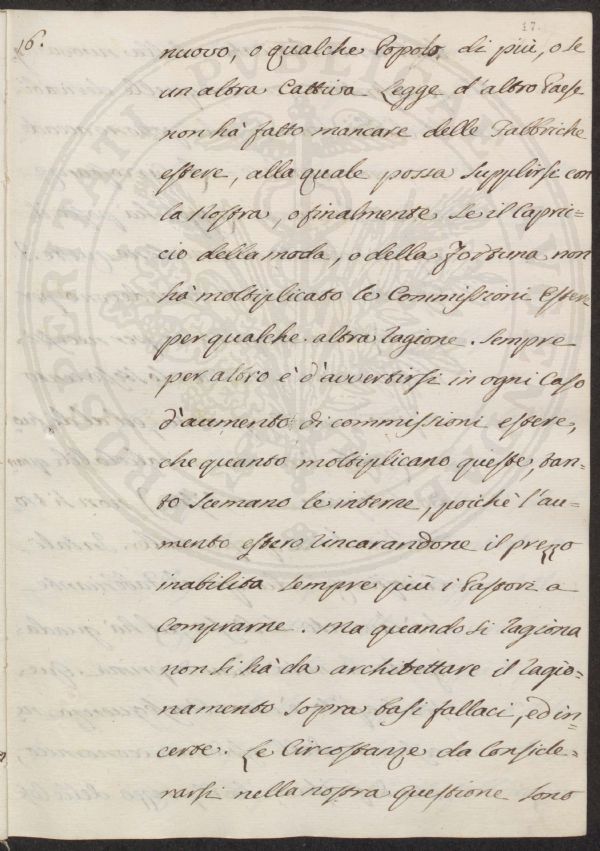 17.
16.
nuovo, o qualche Popolo di più, o se
un altra Cattiva Legge d'altro Paese
non hà fatto mancare delle Fabbriche
estere, alla quale possa supplirsi con
la Nostra, o finalmente se il Capric=
cio della moda, o della Fortuna non
hà moltiplicato le Commissioni Estere
per qualche altra ragione. Sempre
per altro è d'avvertirsi in ogni Caso
d'aumento di commissioni estere,
che quanto moltiplicano queste, tan=
to scemano le interne, poichè l'au=
mento estero rincarandone il prezzo
inabilita sempre più i Pastori a
Comprarne. Ma quando si ragiona
non si hà da architettare il ragio=
namento sopra basi fallaci, ed in=
certe. Le Circostanze da Conside=
rarsi nella nostra questione sono